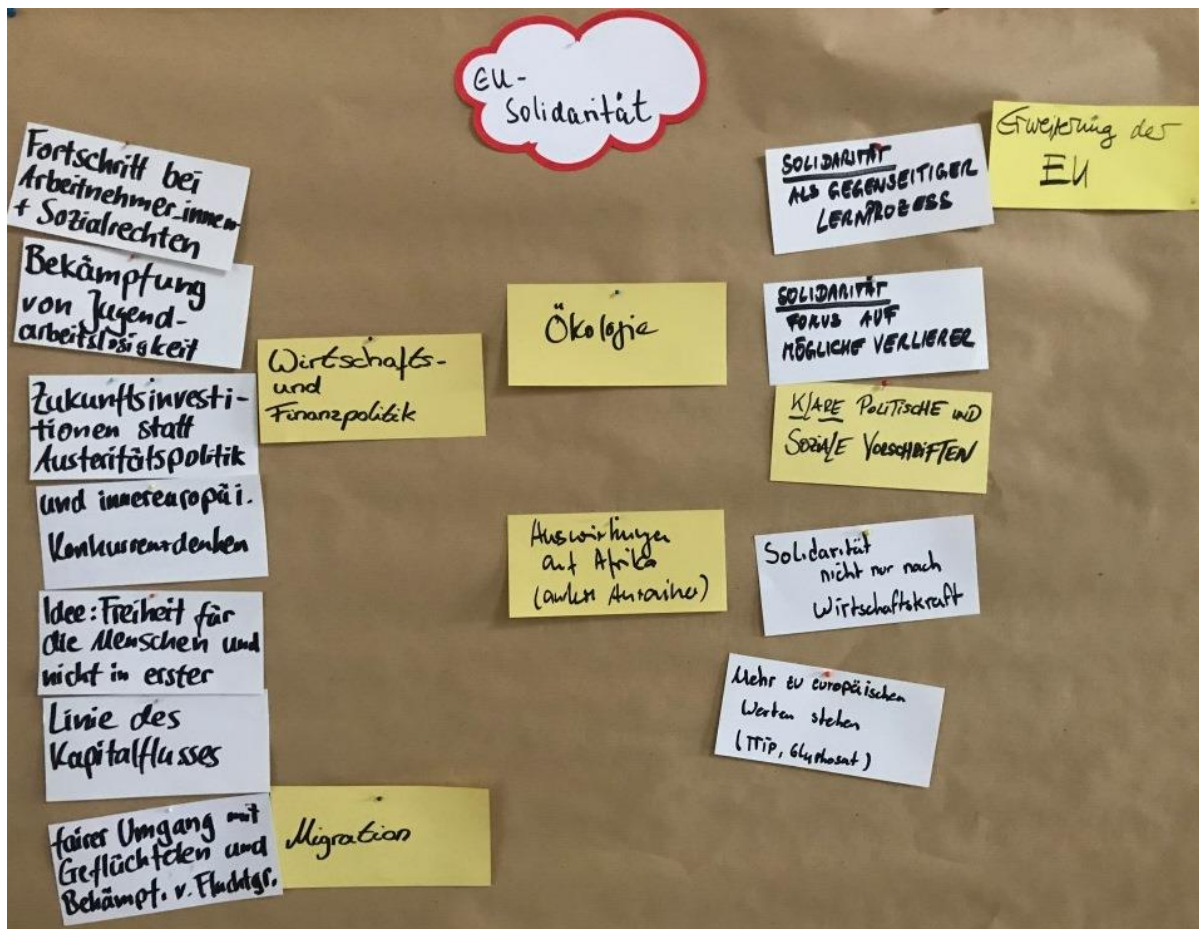 EU-
Solidarität
Fortschritt bei
Arbeitnehmer_innen
+ Sozialrechten
Bekämpfung
von Jugend-
arbeitslosigkeit
Zukunftsinvesti-
tionen statt
Austeritätspolitik
und innereuropäi.
Konkurrenzdenken
Idee: Freiheit für
die Menschen und
nicht in erster
Linie des
Kapitalflusses
fairer Umgang mit
Geflüchteten und
Bekämpf. v. Fluchtgr.
Wirtschafts-
und
Finanzpolitik
Migration
Ökologie
Auswirkungen
auf Afrika
(andere Anrainer)
SOLIDARITÄT
ALS GEGENSEITIGER
LERNPROZESS
Erweiterung der
EU
SOLIDARITÄT
FOKUS AUF
MÖGLICHE VERLIERER
KLARE POLITISCHE UND
SOZIALE VORSCHRIFTEN
Solidarität
nicht nur nach
Wirtschaftskraft
Mehr zu europäischen
Werten stehen
(TTIP, Glyphosat)